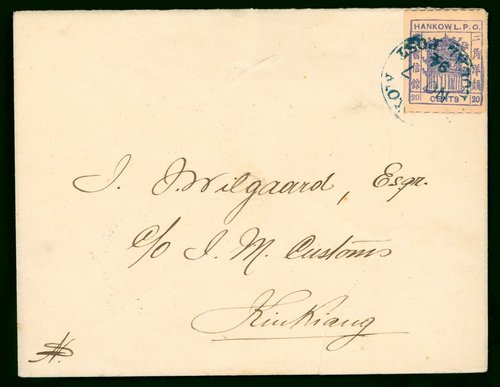 HANKOW L.P.O.
20 CENTS 20
LOCAL POST
J. J. Wilgaard, Esqr.
c/o I. M. Customs
Kiukiang